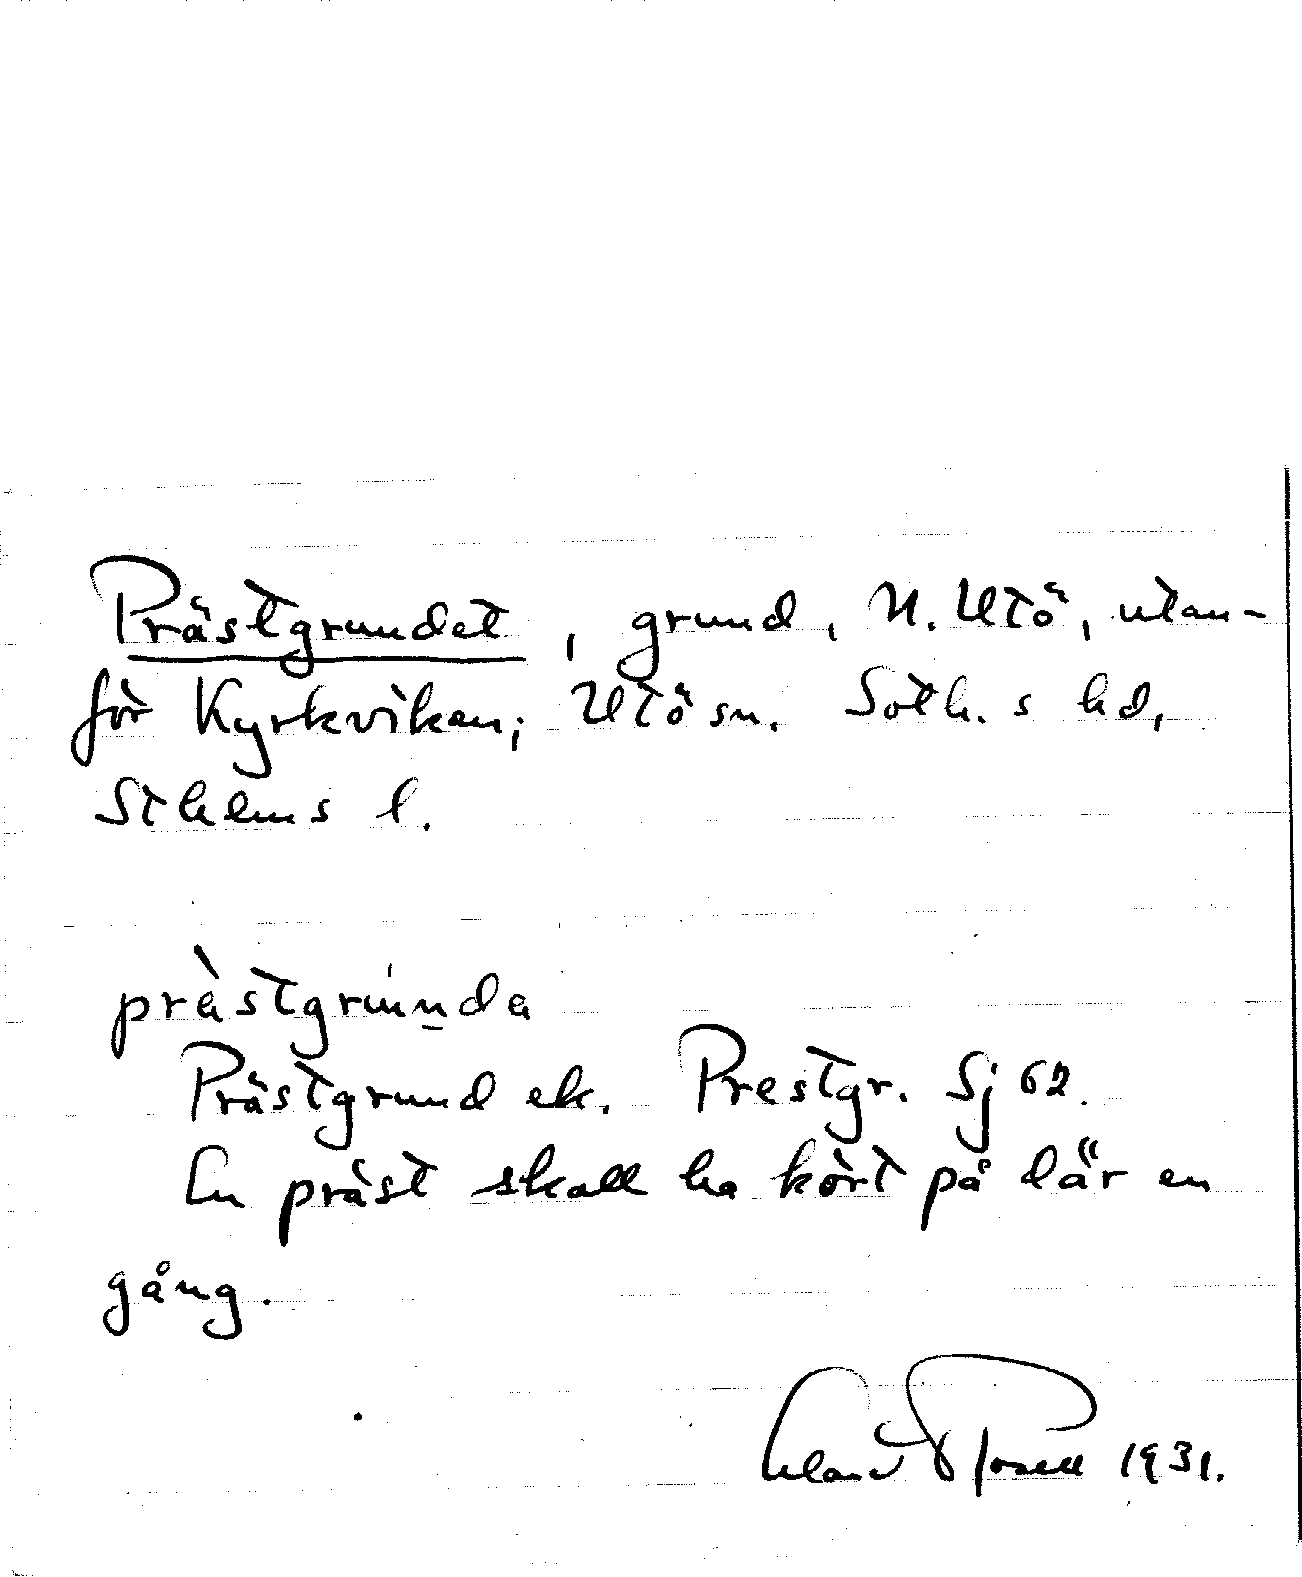 Prästgrundet, grund, N. Utö, utan-
för Kyrkviken; Utö sn. Soth. s hd,
Sthlms l.
prästgrunda
Prästgrund ek. Prestgr. Sj 62.
En präst skall ha kört på där en
gång.
Erland Rosell 1931.